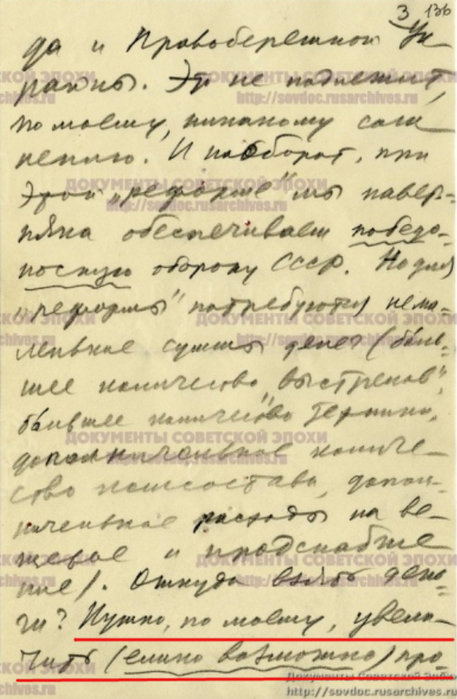 3 136
да и Правобережной Ук-
раины. Это не подлежит,
по моему, никакому сом-
нению. И наоборот, при
этой „реформе“ мы навер-
няка обеспечиваем победо-
носную оборону СССР. Но для
„реформы“ потребуются нема-
ленькие суммы денег (боль-
шее количество „выстрелов“,
большее количество техники,
дополнительное количе-
ство комсостава, допол-
нительные расходы на ве-
щевое и продснабже-
ние). Откуда взять день-
ги? Нужно, по моему, увели-
чить (елико возможно) про-
ДОКУМЕНТЫ СОВЕТСКОЙ ЭПОХИ
http://sovdoc.rusarchives.ru